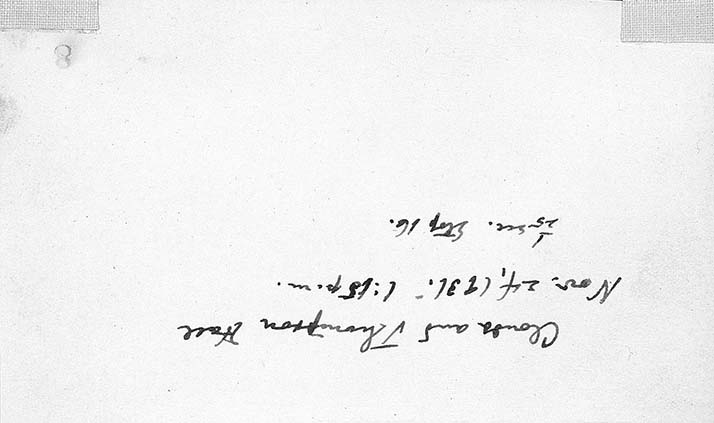 Clouds and Thompson Hall
Nov. 24, 1931. 1:15 p.m.
1/25 sec. Stop 16.
8